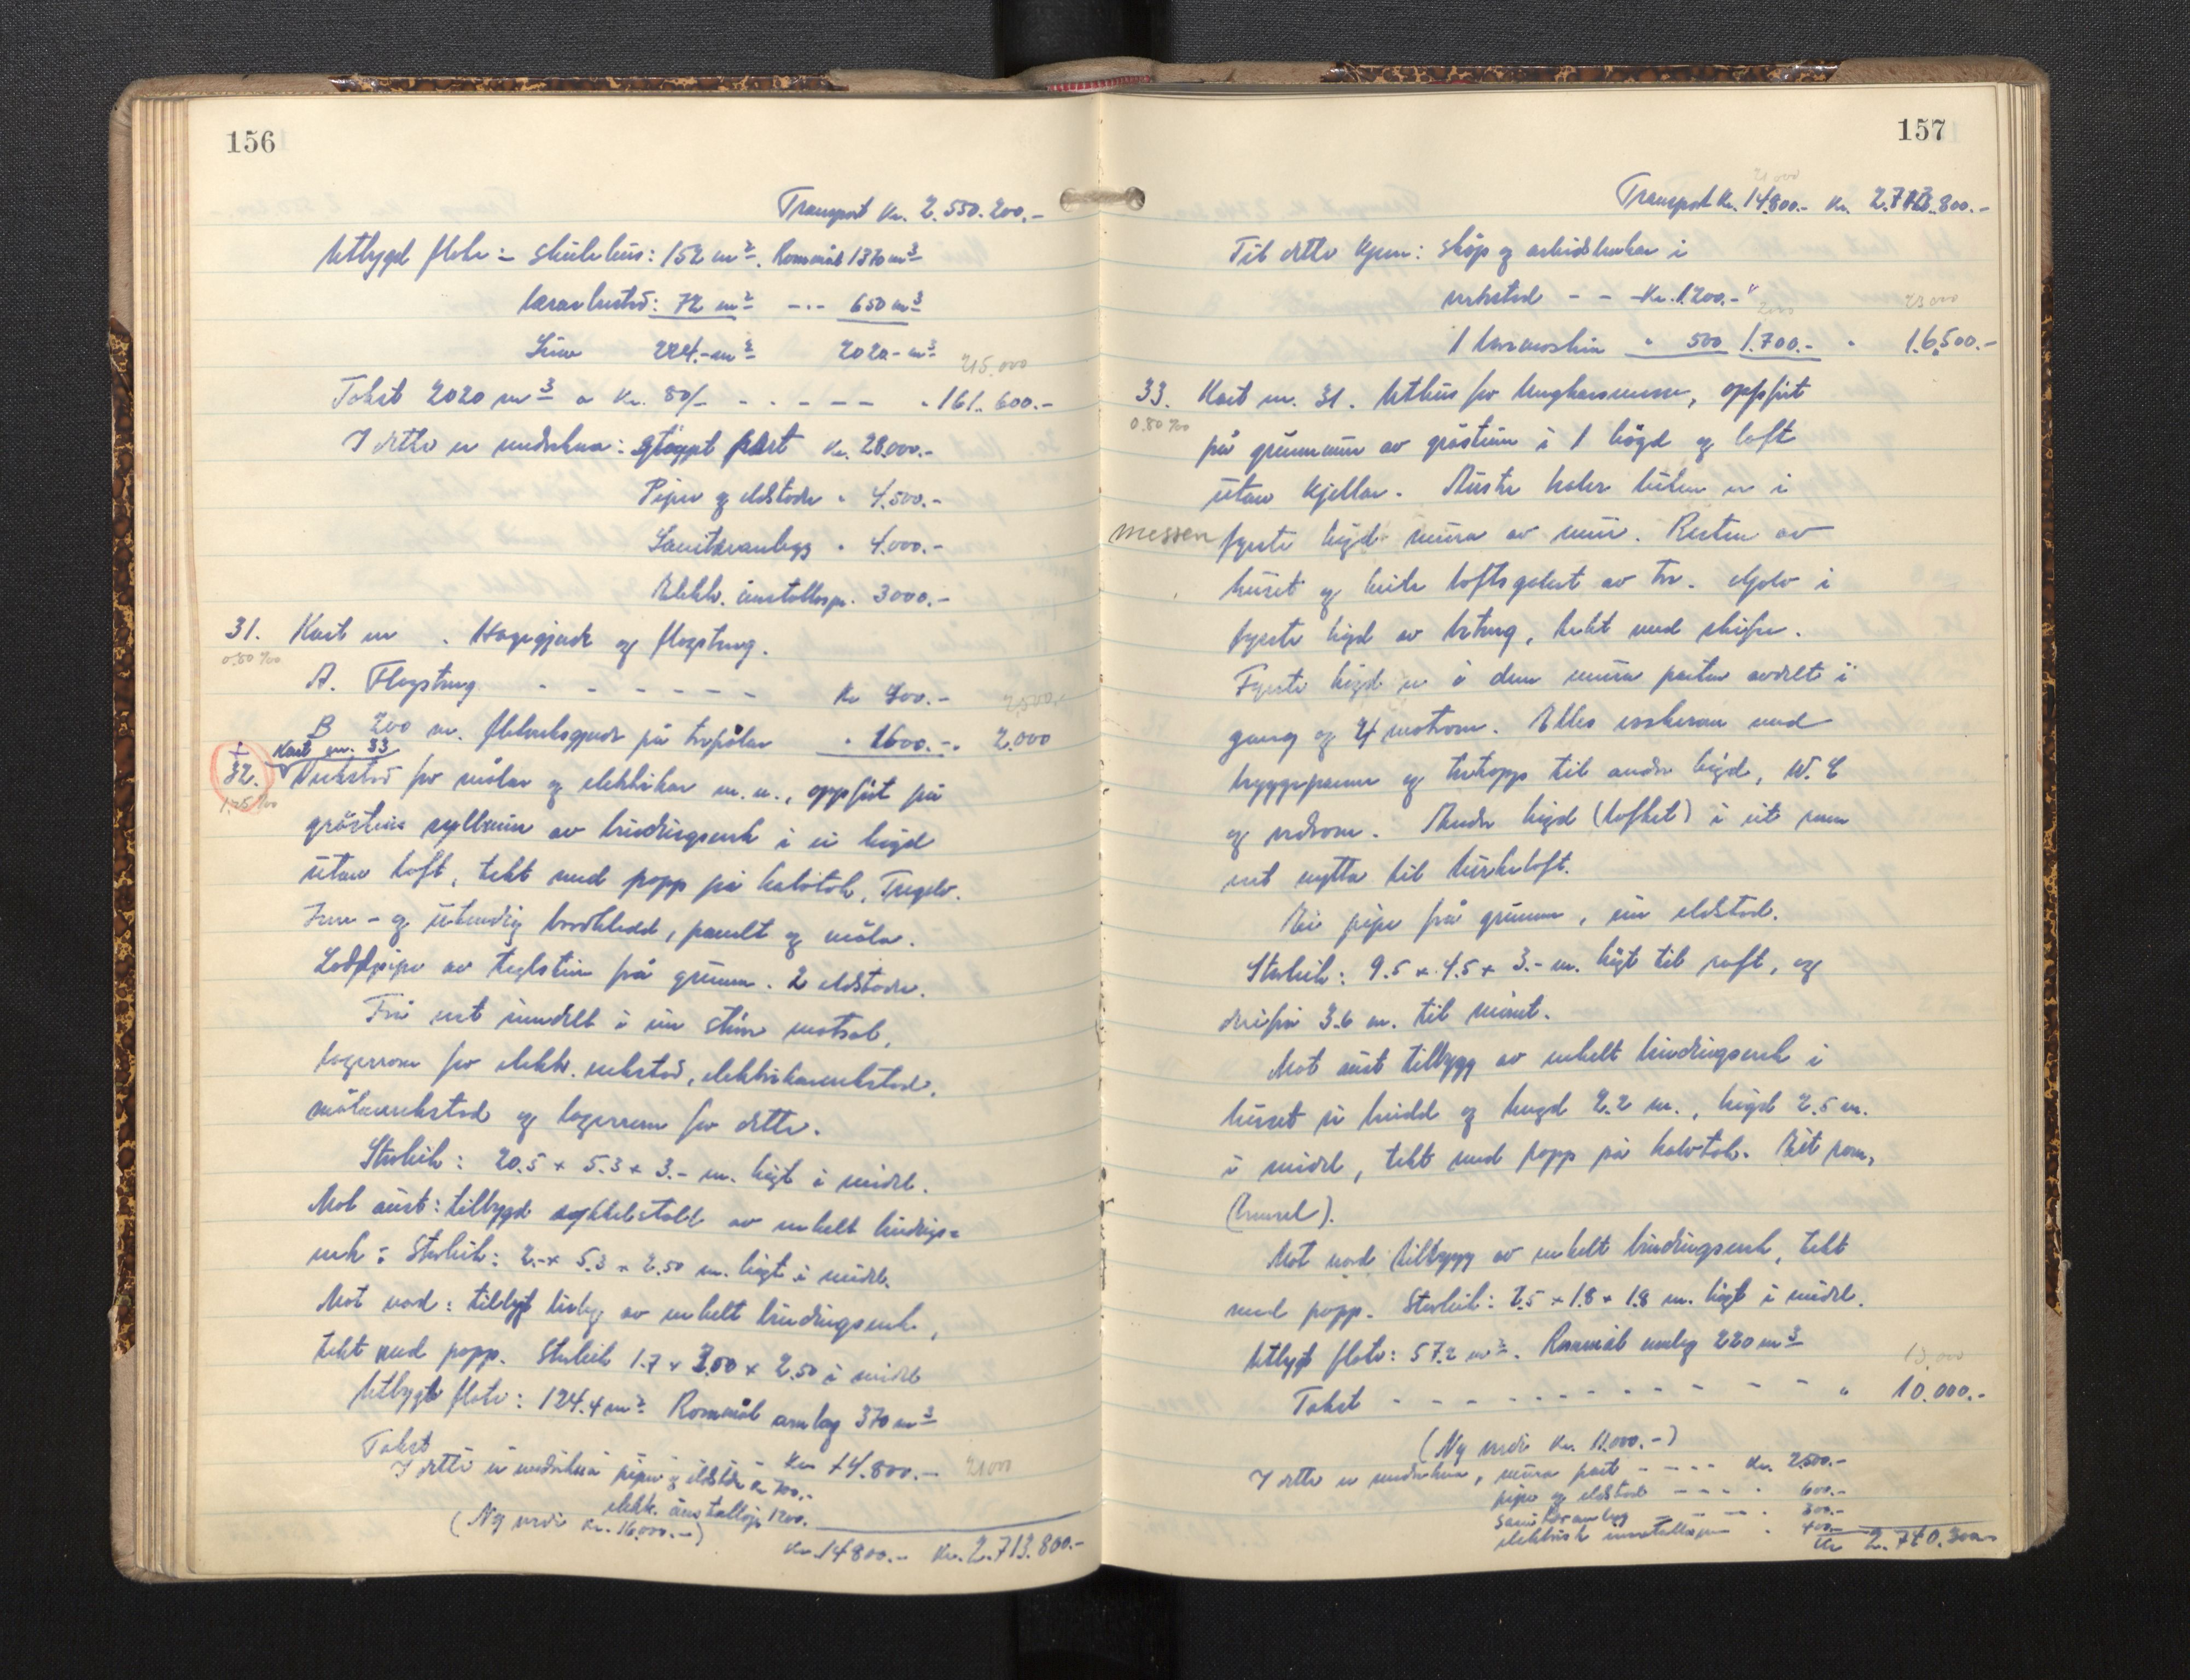 156
Transport kr. 2.550.200.-
Utbygd flate: skulehus: 152 m². Rommål 1370 m³
lærarbustad: 72 m² -.- 650 m³
Sum 224.- m² 2020.- m³
215.000
Takst 2020 m³ a kr. 80/- - - - - - " 161.600.-
I dette er medrekna: støypt part kr. 28.000.-
Piper og eldstader " 4.500.-
Sanitæranlegg " 4.000.-
Elektr. installasjon. 3000.-
31. Kart nr . Hagegjerde og flagstong.
0.80 ‰
A. Flagstong - - - - - - kr 400.- 2.500.-
B 200 m. flettverksgjerde på trepålar " 1600.- " 2.000
+ Kart nr. 33
32. Verkstad for målar og elektrikar m.m., oppført på
1.25 ‰
gråsteins syllmur av bindingsverk i ei høgd
utan loft, tekt med papp på halvtak, Tregolv.
Inn- og utvendig bordkledd, panelt og måla.
Loddpipe av teglstein frå grunnen. 2 eldstader.
Frå vest inndelt i ein større matsal,
lagerrom for elektr. verkstad, elektrikarverkstad,
målarverkstad og lagerrom for dette.
Storleik: 20.5 x 5.3 x 3.- m. høgt i midel.
Mot aust: tilbygd sykkelstall av enkelt bindings=
verk: Storleik: 2.- x 5.3 x 2.50 m. høgt i midel.
Mot nord: tilbygt bislag av enkelt bindingsverk,
tekt med papp. Storleik 1.7 x 3.00 x 2.50 i midel
Utbygt flate: 124.4 m² Rommål omlag 370 m³
Takst - - - - kr 14.800.- 21000
I dette er medrekna piper og eldstader kr 700.-
elektr. installasjon 1200.
(Ny verdi kr. 16.000.-)
kr. 14800.- kr. 2.713.800.-
157
21000
Transport kr. 14.800.- kr. 2.713.800.-
Til dette kjem: skåp og arbeidsbenker i
verkstad - - kr. 1.200.- "
2000 23000
1 " 500 1.700.- " 16.500.-
33. Kart nr. 31. Uthus for Ungharsmessa, oppført
0.80 ‰
på grunnmur av gråstein i 1 høgd og loft
utan kjellar. Austre halve luten er i
messen fyrste høgd mura av mur. Resten av
huset og heile loftsgolvet av tre. Golv i
fyrste høgd av betong, tekt med skifer.
Fyrste høgd er i den mura parten avdelt i
gang og 4 matrom. Elles vaskerom med
bryggepanne og tretrapp til andre høgd, W.C
og vedrom. Andre høgd (loftet) i eit rom
vert nytta til turkeloft.
Ei pipe frå grunnen, ein eldstad.
Storleik: 9.5 x 4.5 x 3.- m. høgt til raft, og
derifrå 3.6 m. til mønet.
Mot aust tilbygg av enkelt bindingsverk i
huset si breidd og lengd 2.2 m., høgd 2.5 m.
i midel, tekt med papp på halvtak. Eit rom,
(brensel).
Mot nord tilbygg av enkelt bindingsverk, tekt
med papp. Storleik: 2.5 x 1.8 x 1.8 m. høgt i midel.
Utbygt flate: 57.2 m². Rommål omlag 220 m³
13,000
Takst - - - - - - - - - - - " 10.000.-
(Ny verdi kr. 11.000.-)
I dette er medrekna, mura part - - - - kr. 2500.-
pipe og eldstad - - - - " 600.-
Sanitæranlegg - - - - " 300.-
elektrisk installasjon " 400.-
kr 2.740.300.-